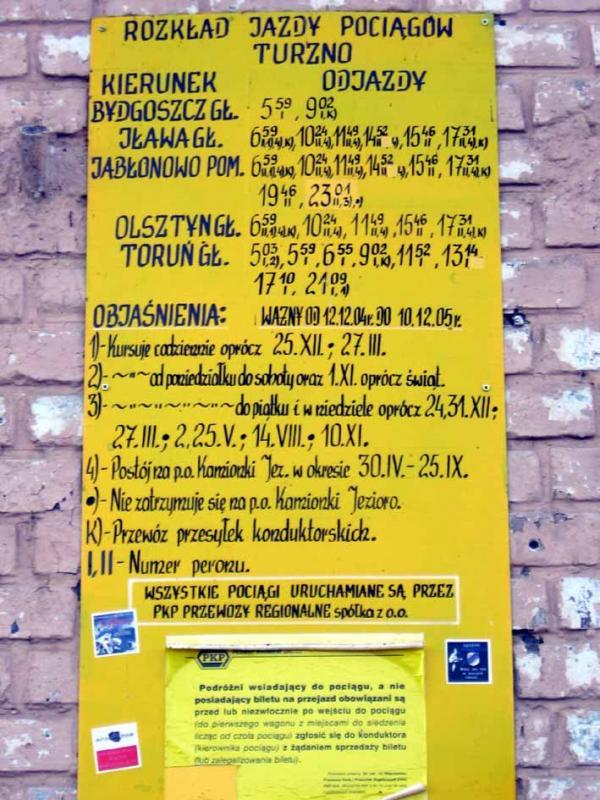 ROZKŁAD JAZDY POCIĄGÓW
TURZNO
KIERUNEK ODJAZDY
BYDGOSZCZ GŁ. 5⁵⁹ I, 9⁰² I,K)
IŁAWA GŁ. 6⁵⁹ II,1)4),K), 10²⁴ II,4), 11⁴⁹ II,4), 14⁵² II 4), 15⁴⁶ II, 17³¹ II,4),K)
JABŁONOWO POM. 6⁵⁹ II,1)4),K), 10²⁴ II,4), 11⁴⁹ II,4), 14⁵² II 4), 15⁴⁶ II, 17³¹ II,4),K)
19⁴⁶ II, 23⁰¹ II,3),•)
OLSZTYN GŁ. 6⁵⁹ II,1)4),K), 10²⁴ II,4), 11⁴⁹ II,4), 15⁴⁶ II, 17³¹ II,4),K)
TORUŃ GŁ. 5⁰³ I,2), 5⁵⁹ I, 6⁵⁵ I, 9⁰² I,K), 11⁵² I, 13¹⁴ I
17¹⁰ I, 21⁰⁹ I,1)
OBJAŚNIENIA: WAŻNY OD 12.12.04r. DO 10.12.05r.
1)- Kursuje codziennie oprócz 25.XII; 27.III.
2)- ~"~ od poniedziałku do soboty oraz 1.XI. oprócz świąt.
3)- ~"~"~"~"~"~ do piątku i w niedziele oprócz 24,31.XII;
27.III.; 2,25.V.; 14.VIII.; 10.XI.
4)- Postój na p.o. Kamionki Jez. w okresie 30.IV.- 25.IX.
•)- Nie zatrzymuje się na p.o. Kamionki Jezioro.
K)- Przewóz przesyłek konduktorskich.
I, II - Numer peronu.
WSZYSTKIE POCIĄGI URUCHAMIANE SĄ PRZEZ
PKP PRZEWOZY REGIONALNE spółka z o.o.
PKP
Podróżni wsiadający do pociągu, a nie
posiadający biletu na przejazd obowiązani są
przed lub niezwłocznie po wejściu do pociągu
(do pierwszego wagonu z miejscami do siedzenia
licząc od czoła pociągu) zgłosić się do konduktora
(kierownika pociągu) z żądaniem sprzedaży biletu
(lub zalegalizowania biletu).